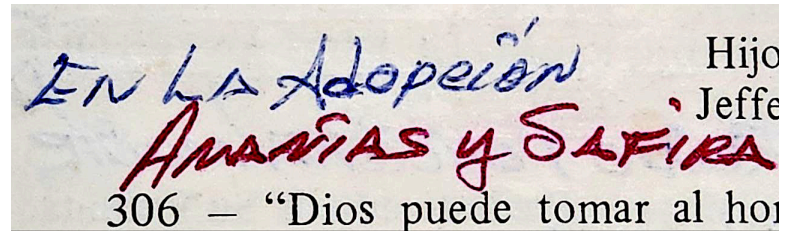 Hijo
En La Adopción
Jeffe
Ananías y Safira
306 – “Dios puede tomar al hor